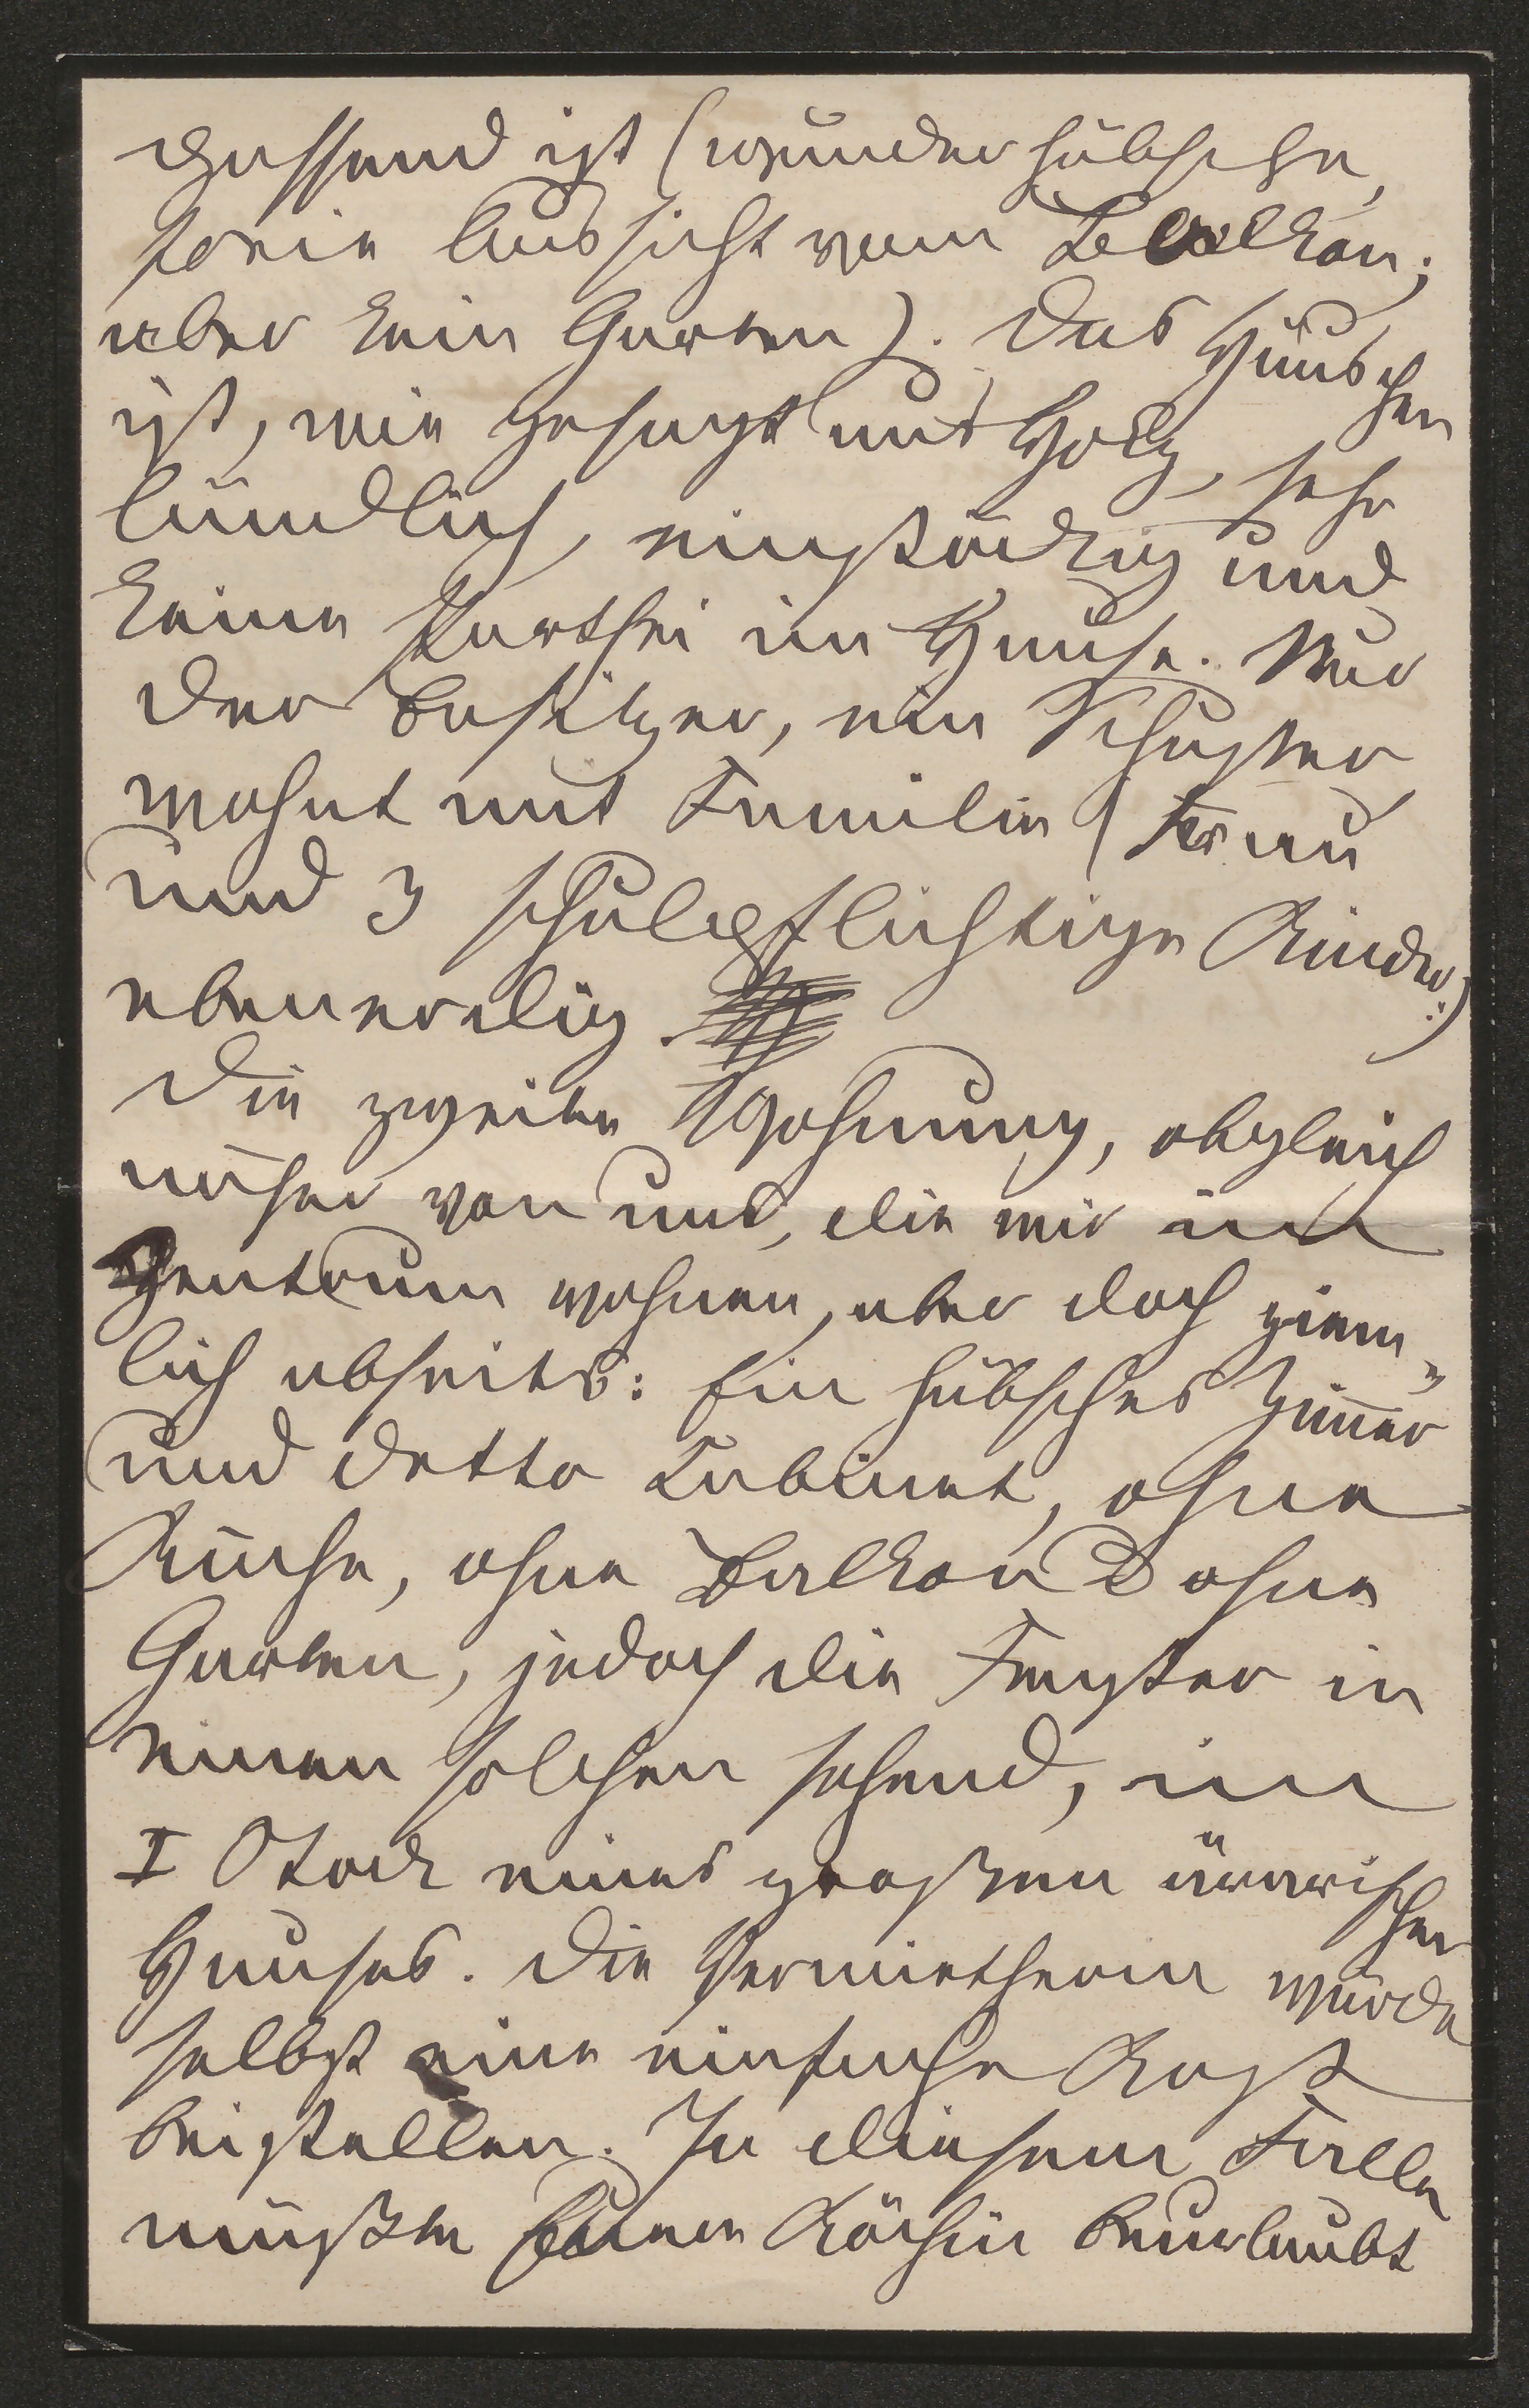 passend ist (wunderhübsche,
freie Aussicht vom Balkon;
aber kein Garten). Das Häuschen
ist, wie gesagt aus Holz, sehr
ländlich, einstöckig und
keine Parthei im Hause. Nur
der Besitzer, ein Schuster
wohnt mit Familie (Frau
und 3 schulpflichtige Kinder.)
ebenerdig.
Die zweite Wohnung, obgleich
näher von uns, die wir im
Zentrum wohnen, aber doch ziem„
lich abseits: Ein hübsches Zimer
und detto Cabinet, ohne
Küche, ohne Balkon & ohne
Garten, jedoch die Fenster in
einen solchen sehend, im
I Stock eines großen ärarischen
Hauses. Die Vermietherin würde
selbst eine einfache Kost
beistellen. In diesem Falle
müßte Köchin beurlaubt